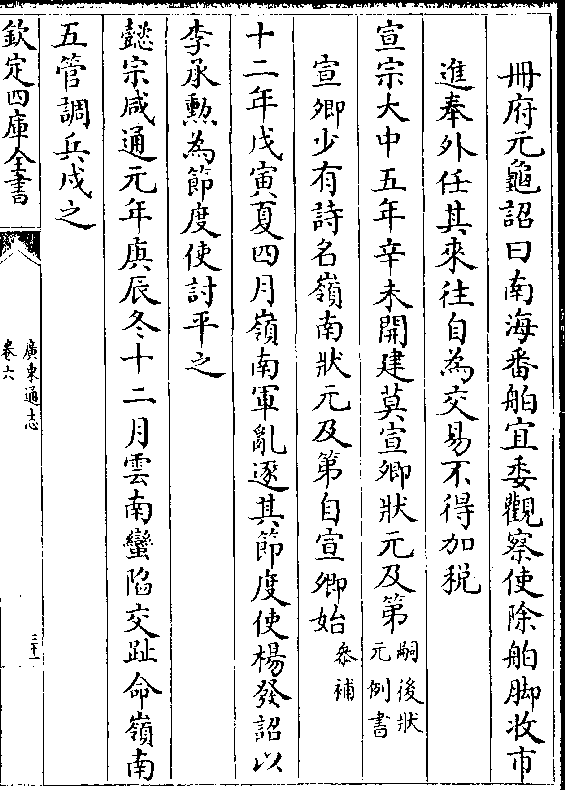 冊府元龜詔曰南海番舶宜委觀察使除舶脚收市
進奉外任其來往自為交易不得加税
宣宗大中五年辛未開建莫宣卿狀元及第嗣後狀元例書
宣卿少有詩名嶺南狀元及第自宣卿始叅補
十二年戊寅夏四月嶺南軍亂逐其節度使楊發詔以
李承勲為節度使討平之
懿宗咸通元年庚辰冬十二月雲南蠻陷交趾命嶺南
五管調兵戍之
欽定四庫全書
廣東通志
卷六
三十一